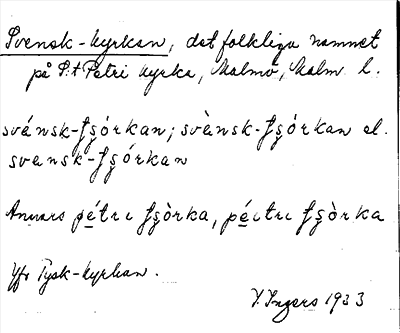 Svensk-kyrkan, det folkliga namnet
på S:t Petri kyrka, Malmö, Malm. l.
svánsk-ʃʂórkan; svànsk-ʃʂórkan el.
svensk-ʃʂórkan
Annars pétri ʃʂòrka, péitri ʃʂòrka
Jfr Tysk-kyrkan.
I. Ingers 1933